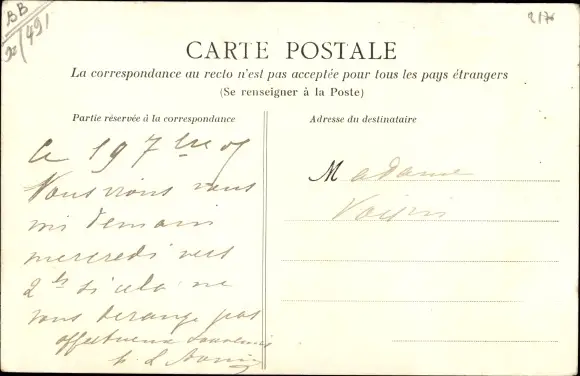 BB
491
2176
CARTE POSTALE
La correspondance au recto n'est pas acceptée pour tous les pays étrangers
(Se renseigner à la Poste)
Partie réservée à la correspondance
Adresse du destinataire
Le 19 7bre 05
Nous irons vous
demain
mercredi vers
2 hs si cela ne
vous derange pas
affectueux souvenir
Madame
Voisin